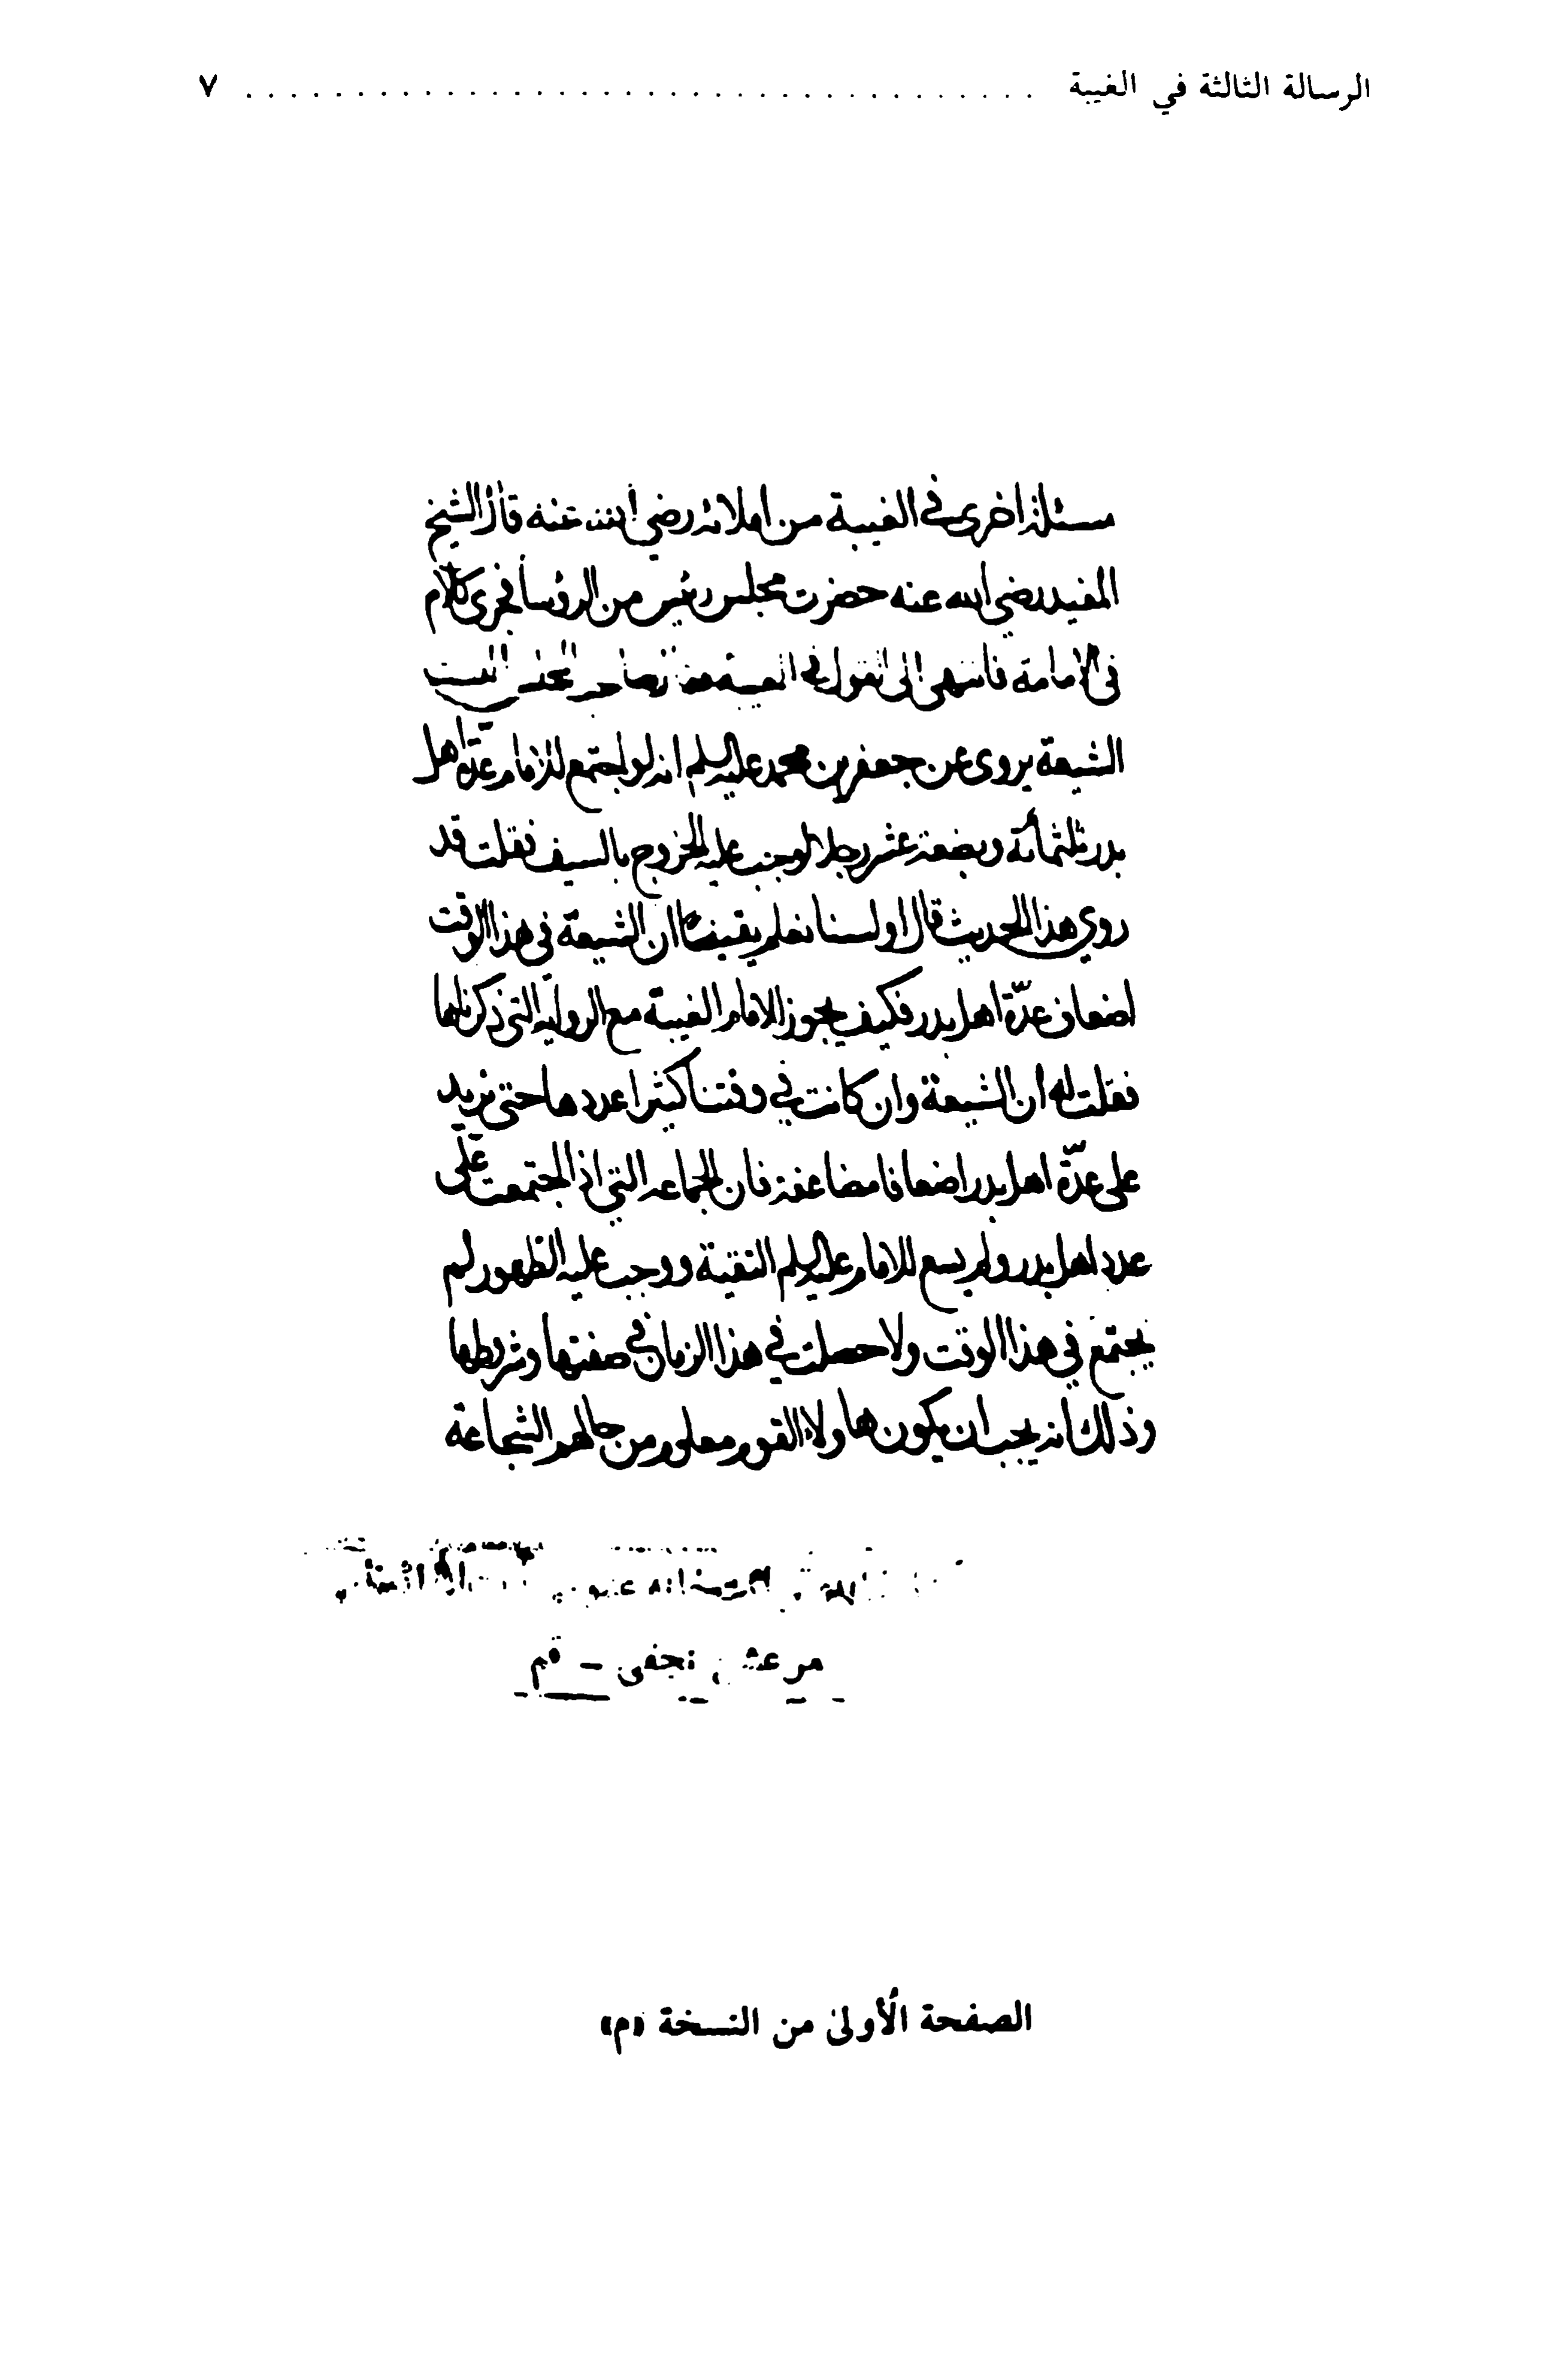 الرسالة الثالثة في الغيبة ........................................ ٧
مسئلة اخرى في الغيبة من املائه رضي الله عنه قال الشيخ
المفيد رضي الله عنه حضرت مجلس رئيس من الرؤسا فجرى كلام
في الامامة فانتهى الى القول في الغيبة فقال صاحب المجلس اليست
الشيعة يروى عن جعفر بن محمد عليه السلم انه لو اجتمع للامام عدة اهل
بدر ثلثمائة وبضعة عشر رجلا لوجب عليه الخروج بالسيف فقلت قد
روي هذا الحديث قال اولسنا نعلم يقينا ان الشيعة في هذا الوقت
اضعاف عدّة اهل بدر فكيف يجوز للامام الغيبة مع الرواية التي ذكرناها
فقلت له ان الشيعة وان كانت في وقتنا كثيرا عددها حتى تزيد
على عدّة اهل بدر اضعافا مضاعفة فان الجماعه التي اذا اجتمعت على
عدد اهل بدر ولم يسع للامام عليه السلم التقية ووجب عليه الظهور لم
يجتمع في هذا الوقت ولا حصلت في هذا الزمان في صفتها وشرطها
وذلك انه يجب ان يكون هاولاء القوم معلوم من حالهم الشجاعة
مرعشي نجفى - قم
الصفحة الأولىٰ من النسخة «م»